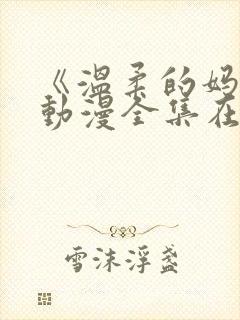 《温柔的妈
动漫全集在
雪沫浮盏